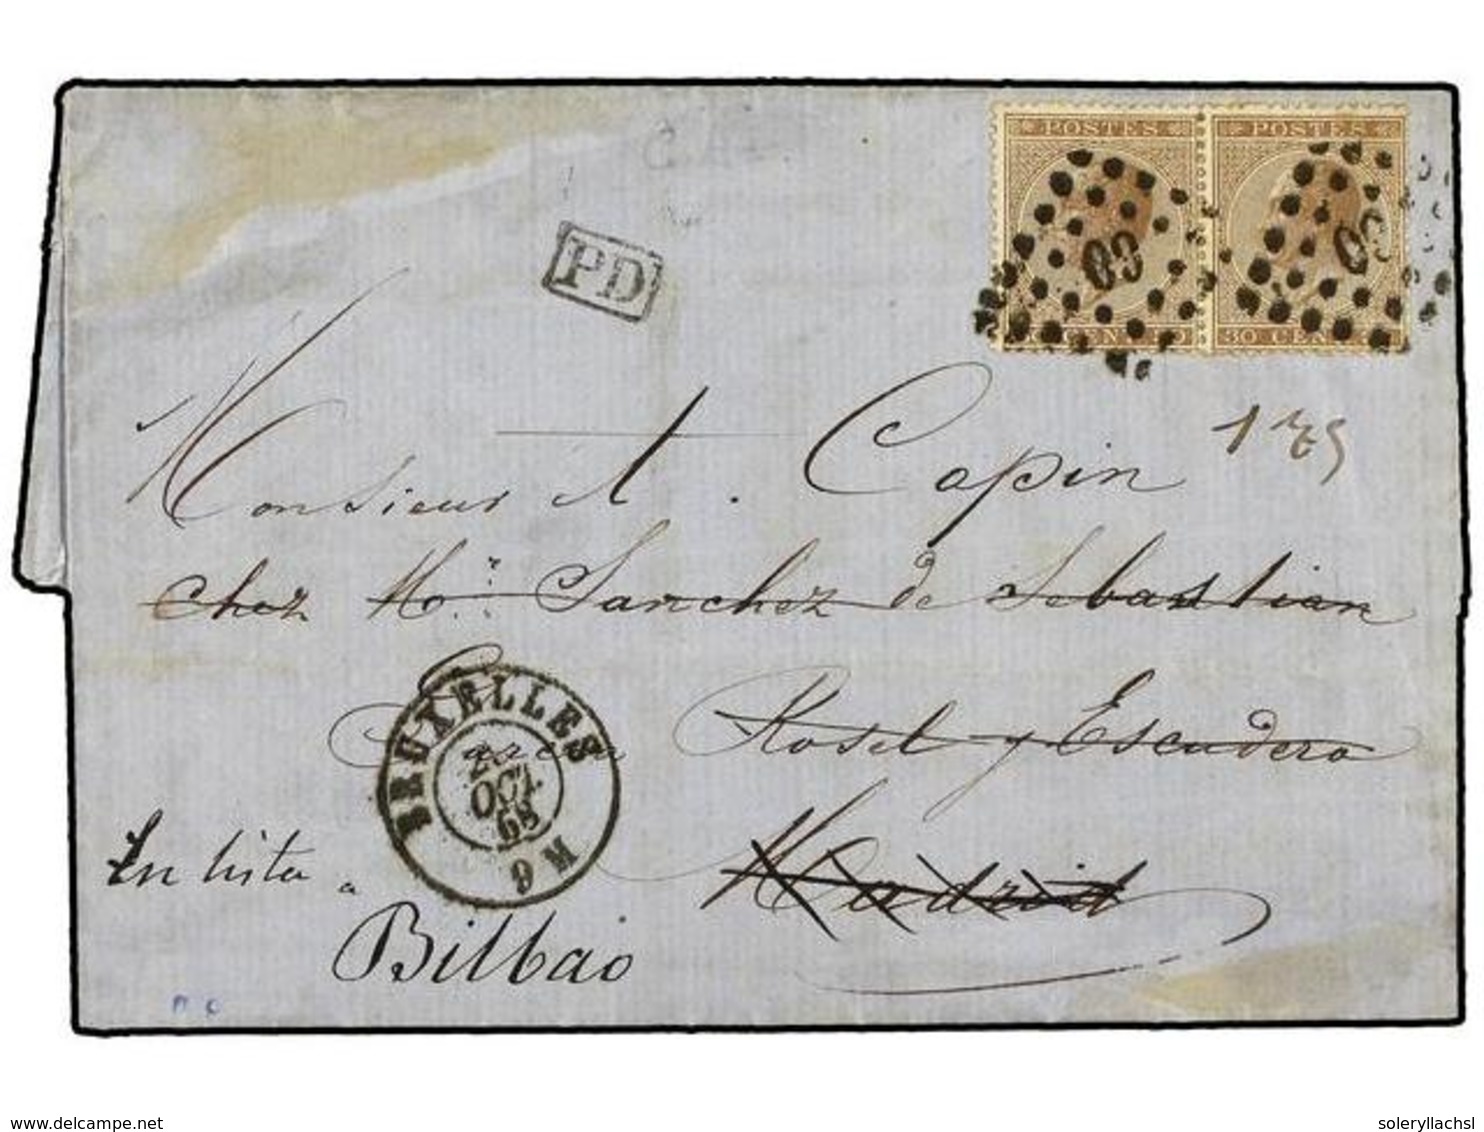 POSTES POSTES
30 CEN
PD
175
Monsieur A. Capin
chez Mr Sanchez de Sebastian
Rosel y Escudero
BRUXELLES
OCT
68
9 M
Madrid
En lista a
Bilbao
delcampe.net
soleryllachsl